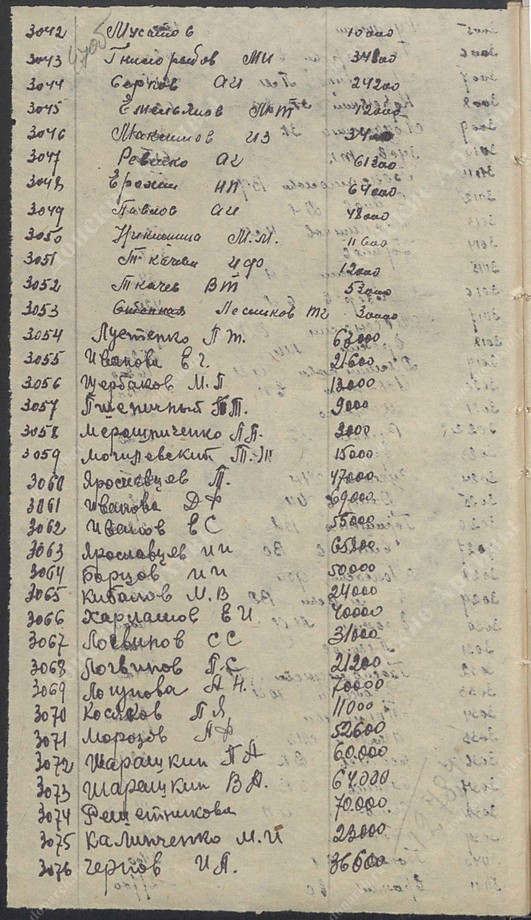 3042 Мусатов 10000
3043 МИ 34800
3044 Серков АИ 24200
3045 Емельянов П Т 12000
3046 Максимов ИЗ
3047 Ревенко АИ 61200
3048 Ерохин НП 64000
3049 Павлов АИ 48000
3050 М.М. 11600
3051 Ткачев ИФ 12000
3052 Ткачев ВТ 53000
3053 Лесников ТГ 30000
3054 Пустенко П Т. 63000
3055 Иванова Е Г. 21600
3056 Щербаков М.П 13000
3057 Пшеничный П.Т. 9000
3058 Мерошниченко П.П. 3000
3059 Могилевский П.Т 15000
3060 Ярославцев П. 47000
3061 Иванова Д Ф 69000
3062 Иванов Е С 55000
3063 Ярославцев И И 65800
3064 Борзов И И 50000
3065 Кибанов М.В 24000
3066 Харламов Е И 40000
3067 Логвинов С С 31000
3068 Логвинов П С 21200
3069 Логунова А Н. 70000
3070 Косяков П Я 11000
3071 Морозов П Ф 52600
3072 Шарацкин П А 60.000
3073 Шарацкин В А. 64000
3074 Решетникова 70.000
3075 Калинченко М.И 23000
3076 Чернов И.П. 36500